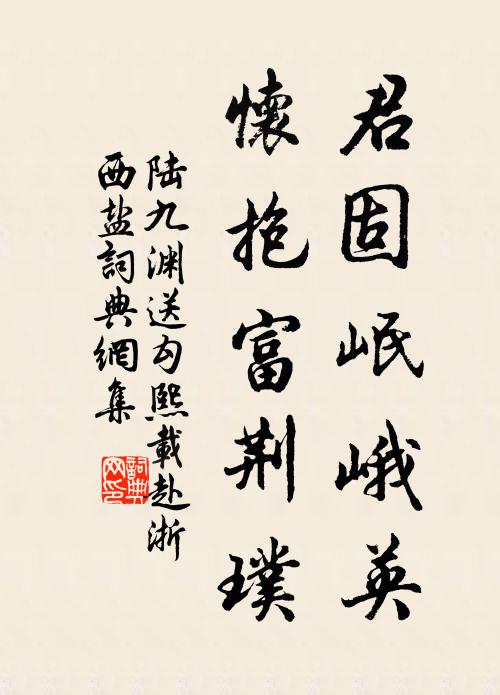 君固岷峨英
懷抱富荆璞
陆九渊送勾熙載赴浙
西盐詞典網集
詞典
网印